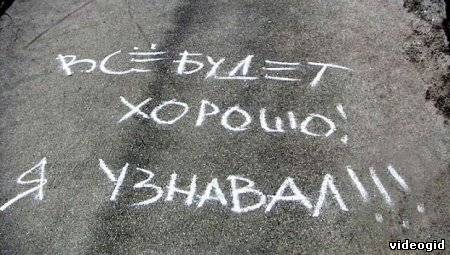 ВСЁ БУДЕТ
ХОРОШО!
Я УЗНАВАЛ!!!
videogid